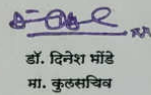 डॉ. दिनेश भोंडे
मा. कुलसचिव